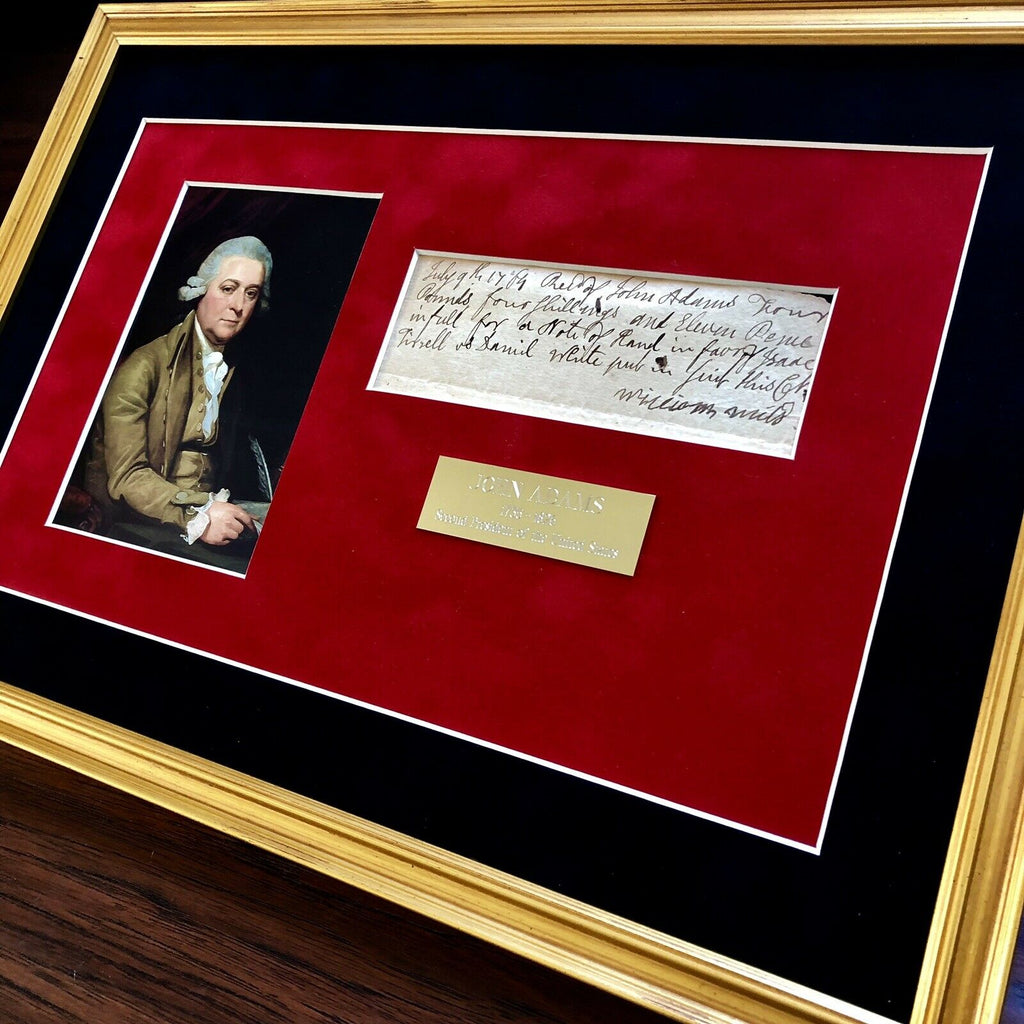 July 9th 1769 Recd of John Adams Four
Pounds four Shillings and Eleven Pence
in full for a Note of Hand in favor of Isaac
Tirrell vs Daniel White put in suit this Ct
William
JOHN ADAMS
1735 - 1826
Second President of the United States